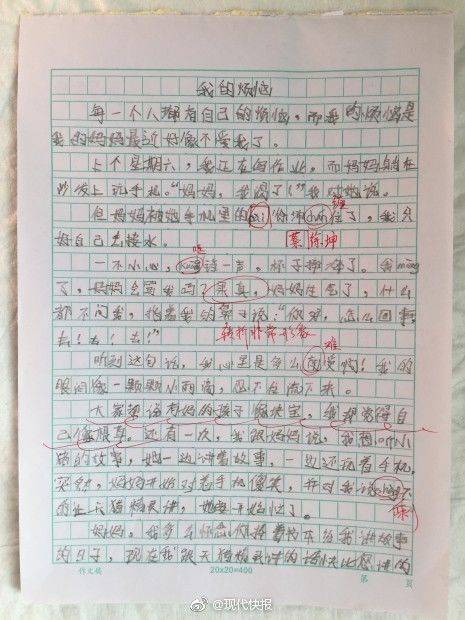 我的烦恼
每一个人都有自己的烦恼，而我的烦恼是
我的妈妈最近好像不爱我了。
上个星期六，我正在写作业，而妈妈躺在
沙发上玩手机。“妈妈，我渴了！”我对她说。
但妈妈被她手机里的
住了，我只
缠
好自己去接水。
蔡徐坤
一不小心，
一声，杯子掉
了。我
了，妈妈会骂我吗？果真，妈妈生气了，什么
都不问我，指着我的鼻子说：“你呀，怎么回事，
去！去！去！”
转折非常形象
难
听到这句话，我心里是多么
受啊！我的
眼泪像一颗颗小雨滴，忍不住流下来。
大家都说有妈的孩子像块宝，我却觉得自
己像根草。还有一次，我跟妈妈说，我想听小
猪的故事，她一边讲着故事，一边还玩着手机，
突然，妈妈开始对着手机傻笑，并对我说
不
陈
叫天猫精灵讲，她
开始忙了。
妈妈，我多么怀念你捧着书本给我讲故事
的日子，现在我跟天猫精灵讲的话快比您讲的
作文稿
20×20=400
第 页
@现代快报